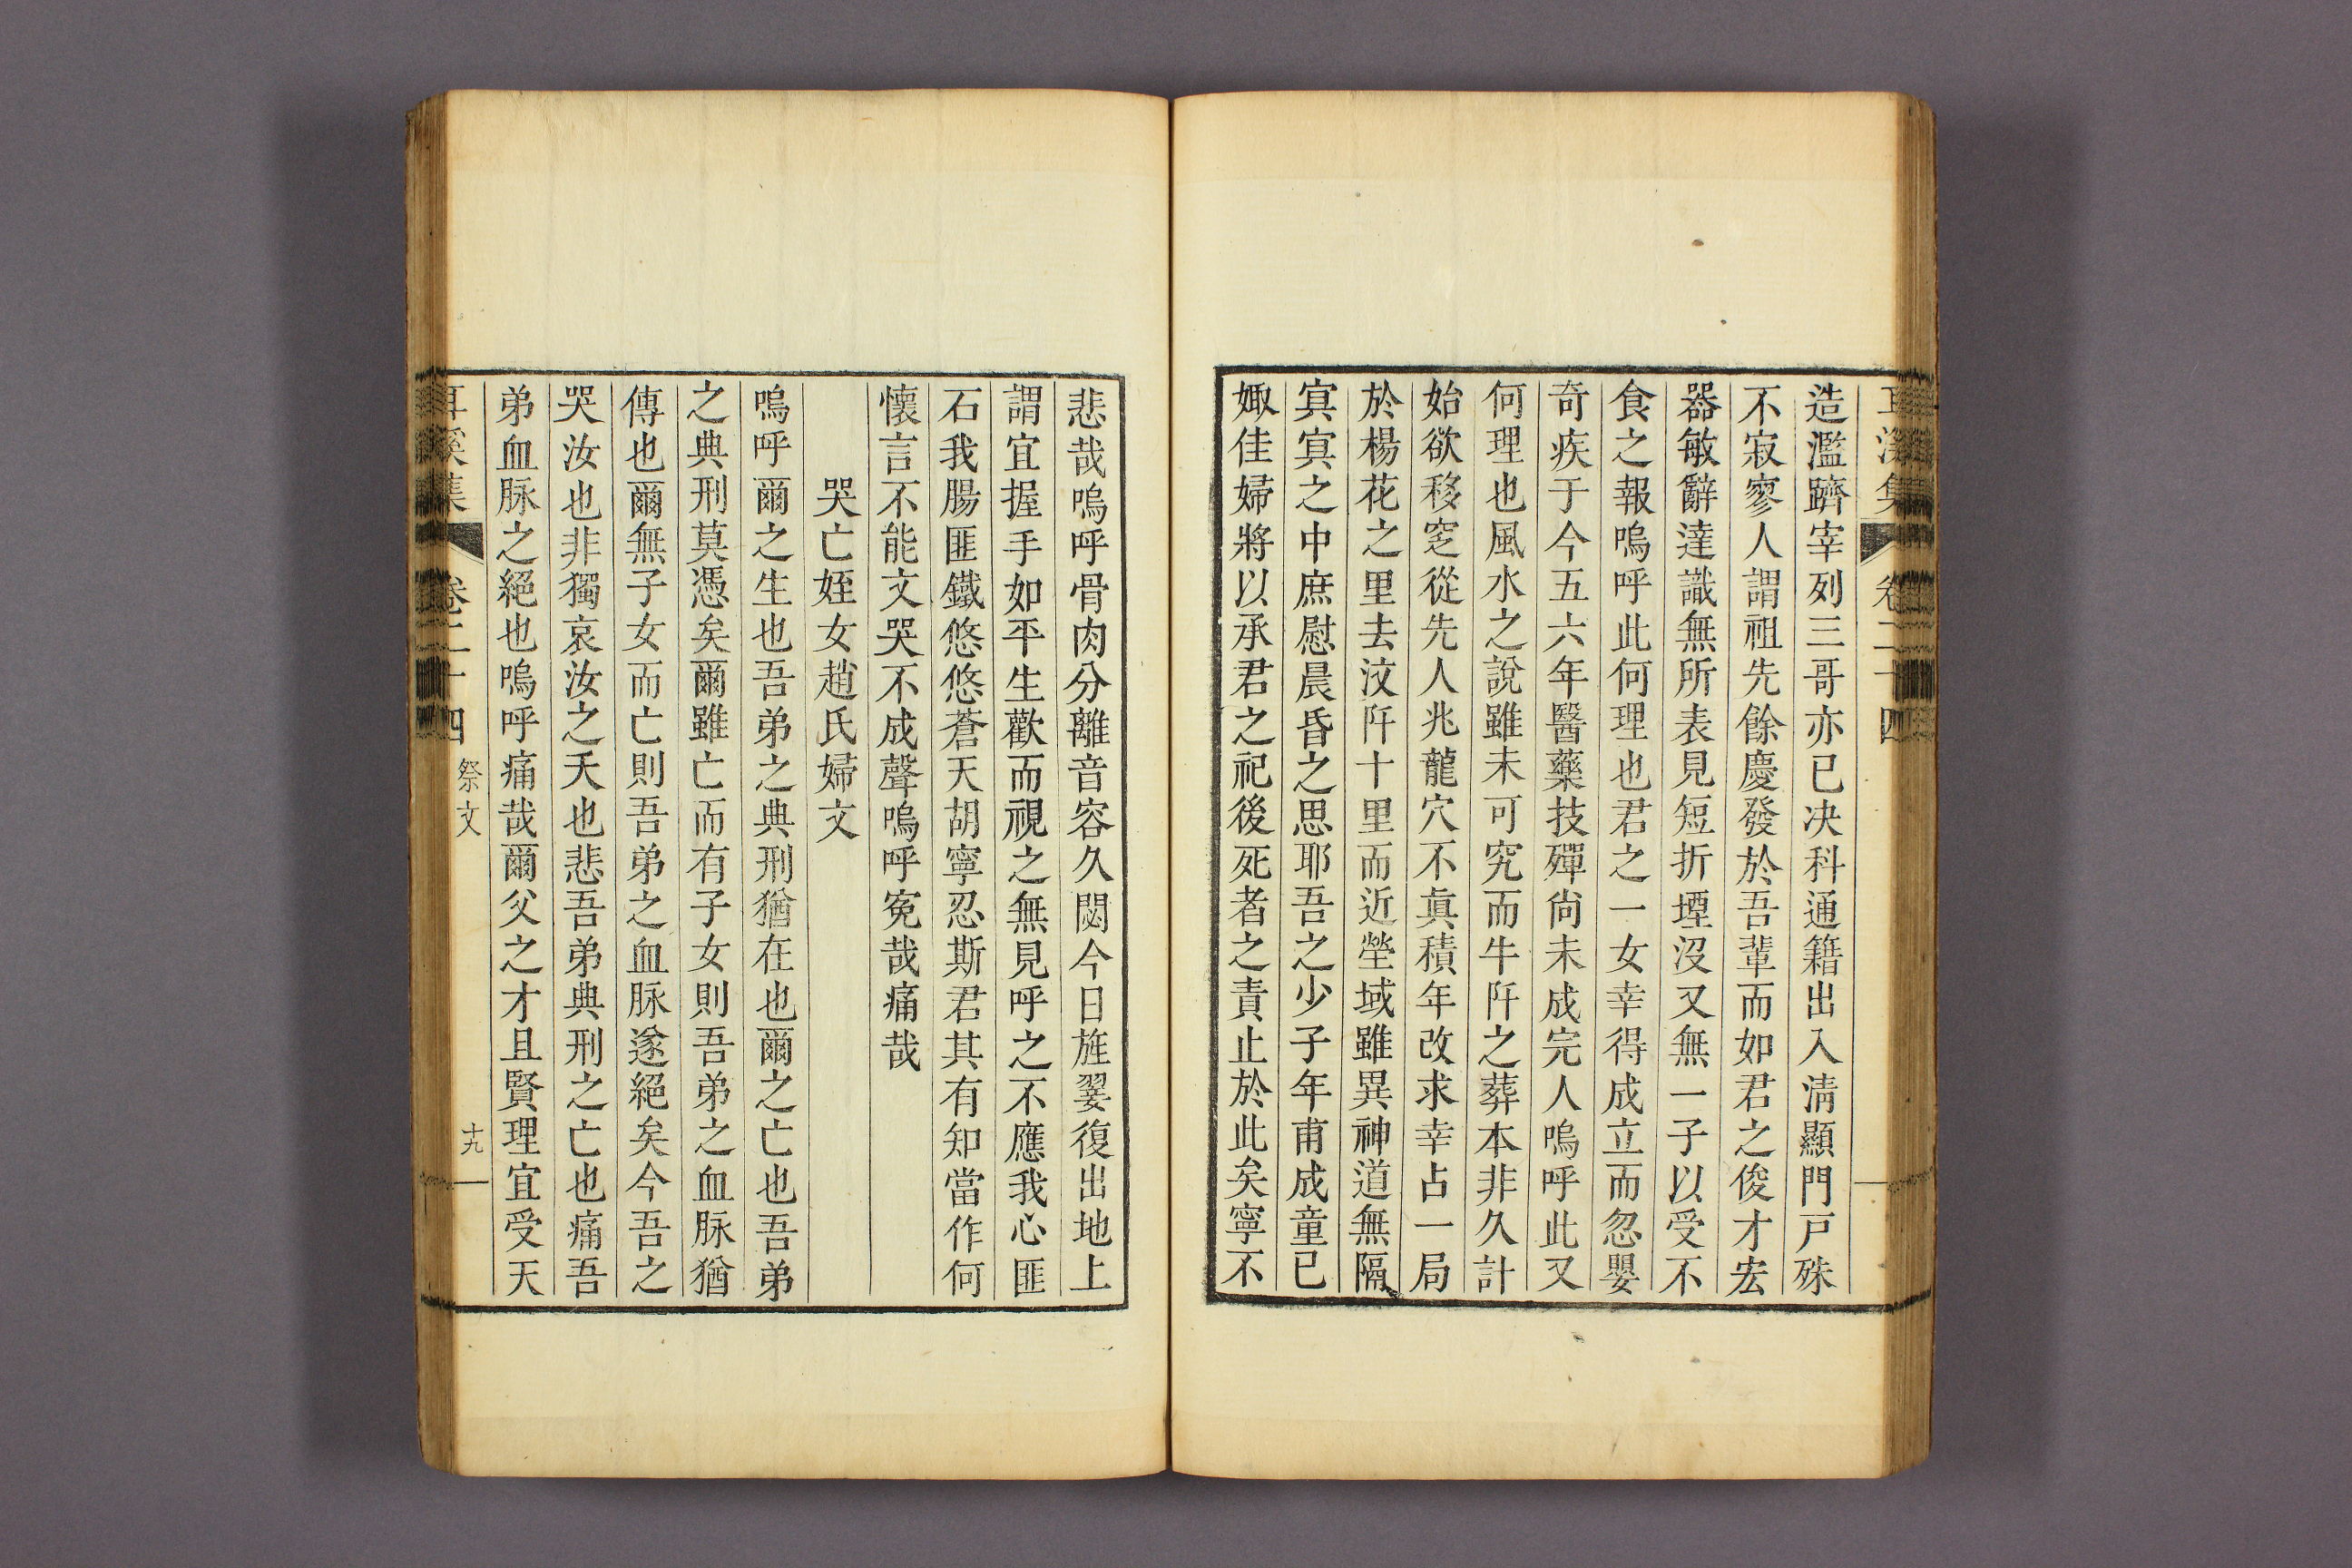 耳溪集 卷二十四
造濫躋宰列三哥亦已决科通籍出入淸顯門戶殊
不寂寥人謂祖先餘慶發於吾輩而如君之俊才宏
器敏辭達識無所表見短折堙沒又無一子以受不
食之報嗚呼此何理也君之一女幸得成立而忽嬰
奇疾于今五六年醫藥技殫尙未成完人嗚呼此又
何理也風水之說雖未可究而牛阡之葬本非久計
始欲移窆從先人兆龍穴不眞積年改求幸占一局
於楊花之里去汶阡十里而近塋域雖異神道無隔
寘寘之中庶慰晨昏之思耶吾之少子年甫成童已
娵佳婦將以承君之祀後死者之責止於此矣寧不
悲哉嗚呼骨肉分離音容久閟今日旌翣復出地上
謂宜握手如平生歡而視之無見呼之不應我心匪
石我腸匪鐵悠悠蒼天胡寧忍斯君其有知當作何
懷言不能文哭不成聲嗚呼寃哉痛哉
哭亡姪女趙氏婦文
嗚呼爾之生也吾弟之典刑猶在也爾之亡也吾弟
之典刑莫憑矣爾雖亡而有子女則吾弟之血脉猶
傳也爾無子女而亡則吾弟之血脉遂絕矣今吾之
哭汝也非獨哀汝之夭也悲吾弟典刑之亡也痛吾
弟血脉之絕也嗚呼痛哉爾父之才且賢理宜受天
耳溪集 卷二十四 祭文 十九